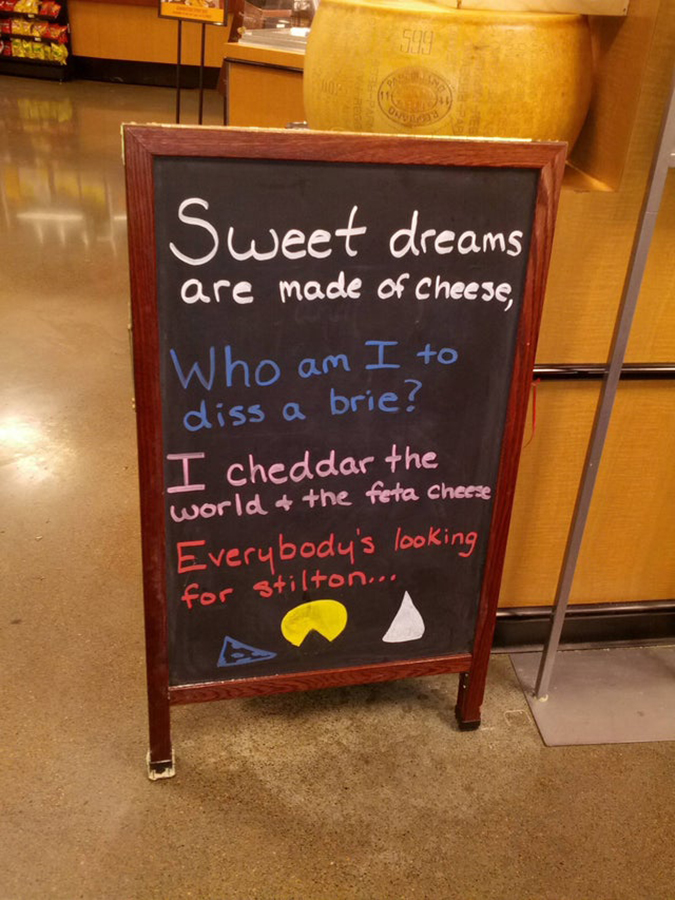 599
Sweet dreams
are made of cheese,
Who am I to
diss a brie?
I cheddar the
world + the feta cheese
Everybody's looking
for stilton...